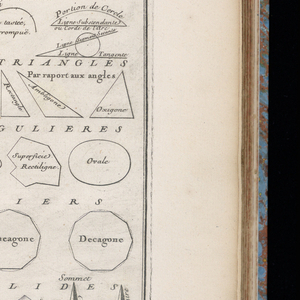 Portion de Cercle
Ligne Subtendante
ou Corde de l'Arc
Ligne
Ligne Tangente
TRIANGLES
Par raport aux angles
Rectangle
Ambligone
Oxigone
GULIERES
Superficie
Rectiligne
Ovale
IERS
Decagone
Sommet
LIDES